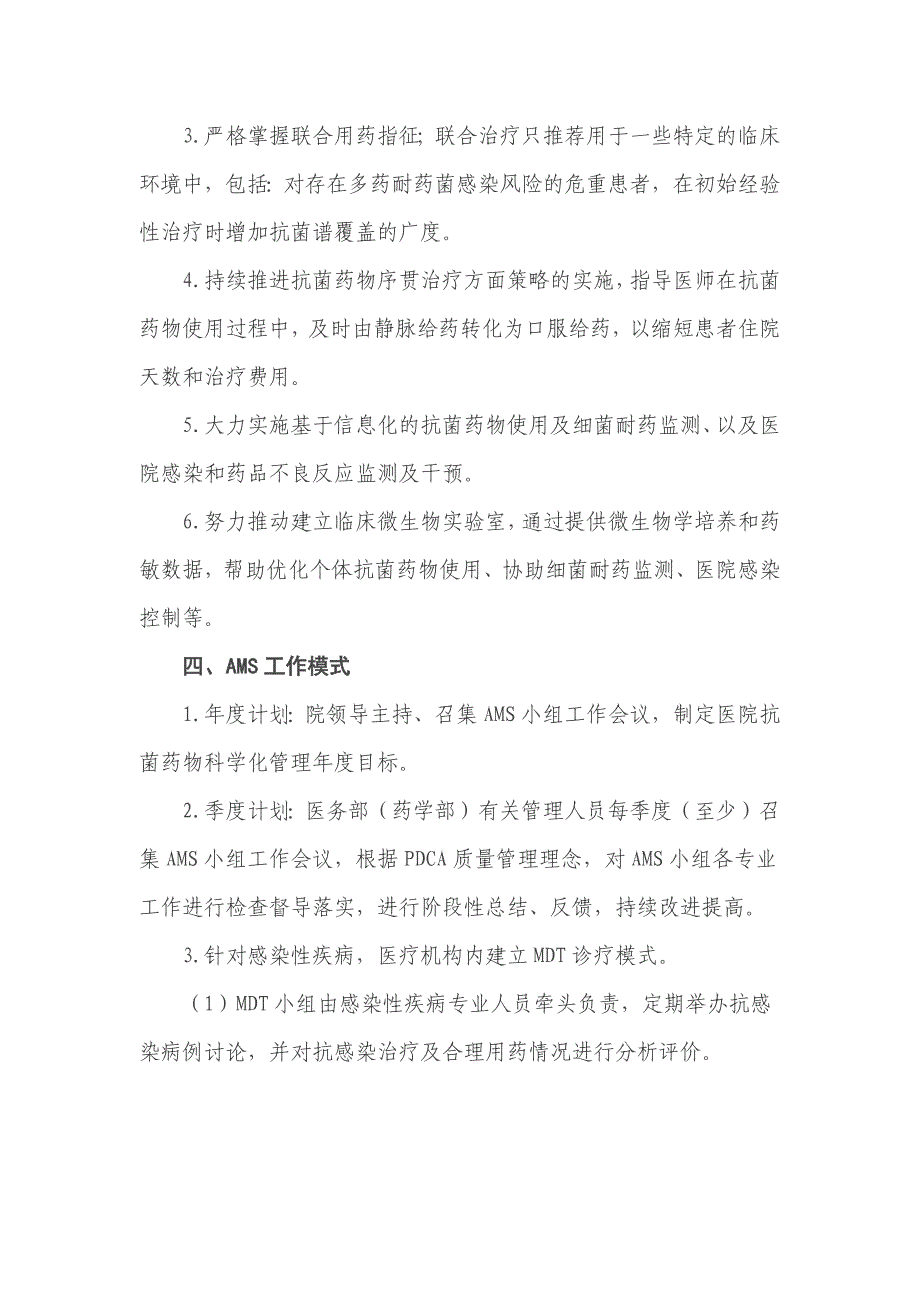 3.严格掌握联合用药指征；联合治疗只推荐用于一些特定的临床
环境中，包括：对存在多药耐药菌感染风险的危重患者，在初始经验
性治疗时增加抗菌谱覆盖的广度。
4.持续推进抗菌药物序贯治疗方面策略的实施，指导医师在抗菌
药物使用过程中，及时由静脉给药转化为口服给药，以缩短患者住院
天数和治疗费用。
5.大力实施基于信息化的抗菌药物使用及细菌耐药监测、以及医
院感染和药品不良反应监测及干预。
6.努力推动建立临床微生物实验室，通过提供微生物学培养和药
敏数据，帮助优化个体抗菌药物使用、协助细菌耐药监测、医院感染
控制等。
四、AMS 工作模式
1.年度计划：院领导主持、召集 AMS 小组工作会议，制定医院抗
菌药物科学化管理年度目标。
2.季度计划：医务部（药学部）有关管理人员每季度（至少）召
集 AMS 小组工作会议，根据 PDCA 质量管理理念，对 AMS 小组各专业
工作进行检查督导落实，进行阶段性总结、反馈，持续改进提高。
3.针对感染性疾病，医疗机构内建立 MDT 诊疗模式。
（1）MDT 小组由感染性疾病专业人员牵头负责，定期举办抗感
染病例讨论，并对抗感染治疗及合理用药情况进行分析评价。